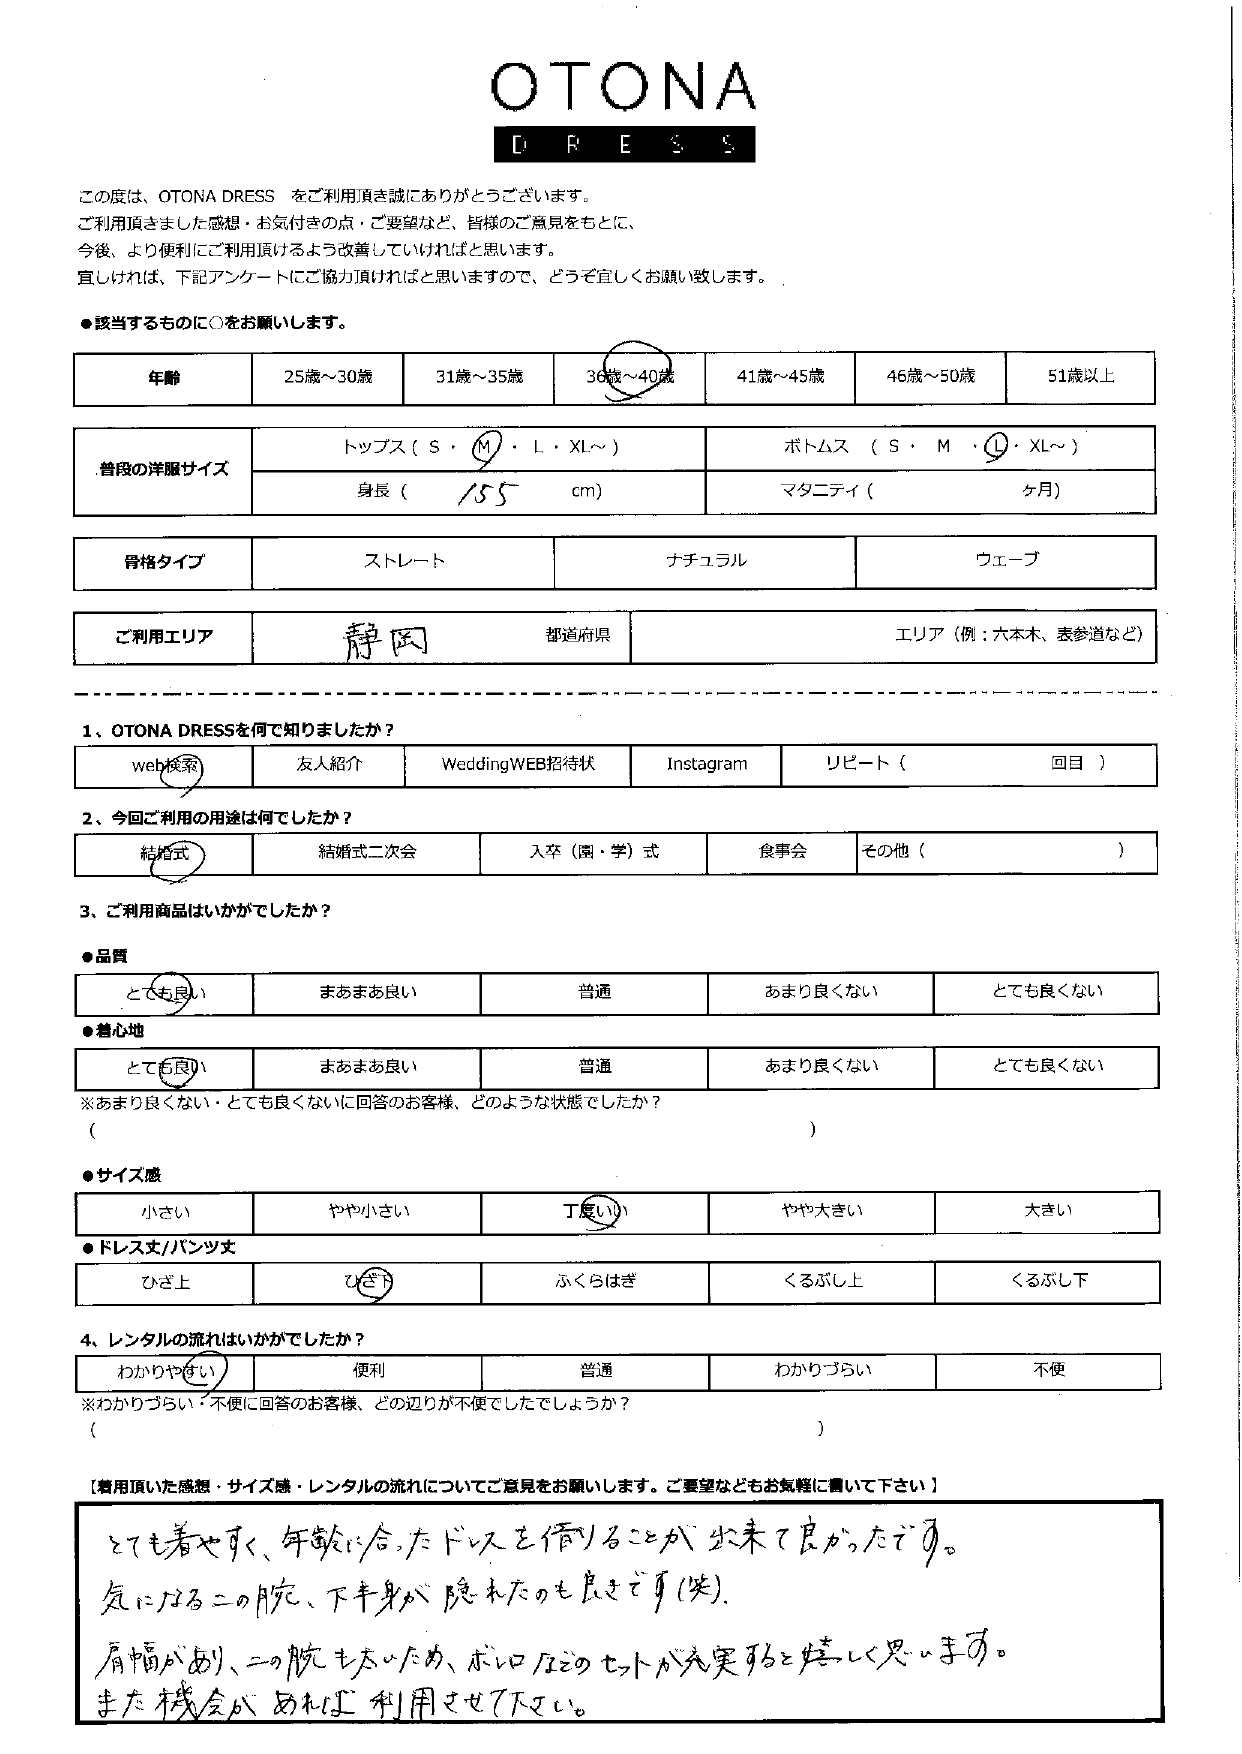 OTONA
DRESS
この度は、OTONA DRESS　をご利用頂き誠にありがとうございます。
ご利用頂きました感想・お気付きの点・ご要望など、皆様のご意見をもとに、
今後、より便利にご利用頂けるよう改善していければと思います。
宜しければ、下記アンケートにご協力頂ければと思いますので、どうぞ宜しくお願い致します。
●該当するものに○をお願いします。
年齢 25歳～30歳 31歳～35歳 36歳～40歳 41歳～45歳 46歳～50歳 51歳以上
普段の洋服サイズ トップス ( S ・ M ・ L ・ XL～ ) ボトムス ( S ・ M ・ L ・ XL～ )
身長 ( 155 cm) マタニティ ( ヶ月)
骨格タイプ ストレート ナチュラル ウェーブ
ご利用エリア 静岡 都道府県 エリア（例：六本木、表参道など）
1、OTONA DRESSを何で知りましたか？
web検索 友人紹介 WeddingWEB招待状 Instagram リピート（ 回目 ）
2、今回ご利用の用途は何でしたか？
結婚式 結婚式二次会 入卒（園・学）式 食事会 その他（ ）
3、ご利用商品はいかがでしたか？
●品質
とても良い まあまあ良い 普通 あまり良くない とても良くない
●着心地
とても良い まあまあ良い 普通 あまり良くない とても良くない
※あまり良くない・とても良くないに回答のお客様、どのような状態でしたか？
( )
●サイズ感
小さい やや小さい 丁度いい やや大きい 大きい
●ドレス丈/パンツ丈
ひざ上 ひざ下 ふくらはぎ くるぶし上 くるぶし下
4、レンタルの流れはいかがでしたか？
わかりやすい 便利 普通 わかりづらい 不便
※わかりづらい・不便に回答のお客様、どの辺りが不便でしたでしょうか？
( )
【着用頂いた感想・サイズ感・レンタルの流れについてご意見をお願いします。ご要望などもお気軽に書いて下さい】
とても着やすく、年齢に合ったドレスを借りることが出来て良かったです。
気になる二の腕、下半身が隠れたのも良きです(笑).
肩幅があり、二の腕も太いため、ボレロなどのセットが充実すると嬉しく思います。
また機会があれば利用させて下さい。